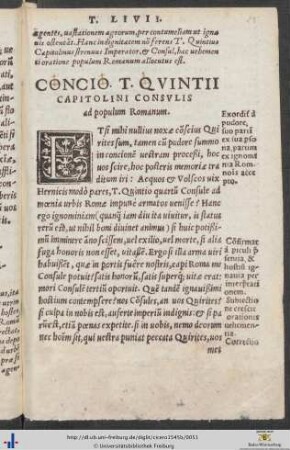 T. LIVII.
agentes, uastationem agrorum, per contumeliam ut igna
uis ostentāt. Hanc indignitatem nō ferens T. Quintus
Capitolinus strenuus Imperator, & Consul, hac uehemen
ti oratione populum Romanum allocutus est.
CONCIO. T. QVINTII
CAPITOLINI CONSVLIS
ad populum Romanum.
ETsi mihi nullius noxæ cōscius Qui
rites sum, tamen cū pudore summo
in concionē uestram processi, hoc
uos scire, hoc posteris memoriæ tra
ditum iri: Aequos & Volscos uix
Hernicis modò pares, T. Quintio quartū Consule ad
mœnia urbis Romæ impunè armatos uenisse? Hanc
ego ignominiam, quanq; iam diu ita uiuitur, is status
rerū est, ut nihil boni diuinet animus) si huic potissi-
mū imminere āno scissem, uel exilio, uel morte, si alia
fuga honoris non esset, uitassē. Ergo si illa arma uiri
habuissēt, quæ in portis fuêre nostris, capi Roma me
Consule potuit? satis honorū, satis superq; uitæ erat:
mori Consulē tertiū oportuit. Quē tandē ignauissimi
hostium contempsere? nos Cōsules, an uos Quirites?
si culpa in nobis est, auferte imperiū indignis: & si pa
rū est, etiā pœnas expetite. si in uobis, nemo deorum
nec hoīm sit, qui uestra puniat peccata Quirites, uos
mes
Exordiū à
pudore,
suo partī
ex iua pso
na, partim
ex ignomi
nia Rom-
nola acce
pto.
Cōfirmat
à
&
gnauia per
interpretati
onem.
Subiectio
ne crescit
orationis
uehemen-
tia.
Correctio
http://dl.ub.uni-freiburg.de/diglit/cicero1545b/0031
© Universitätsbibliothek Freiburg